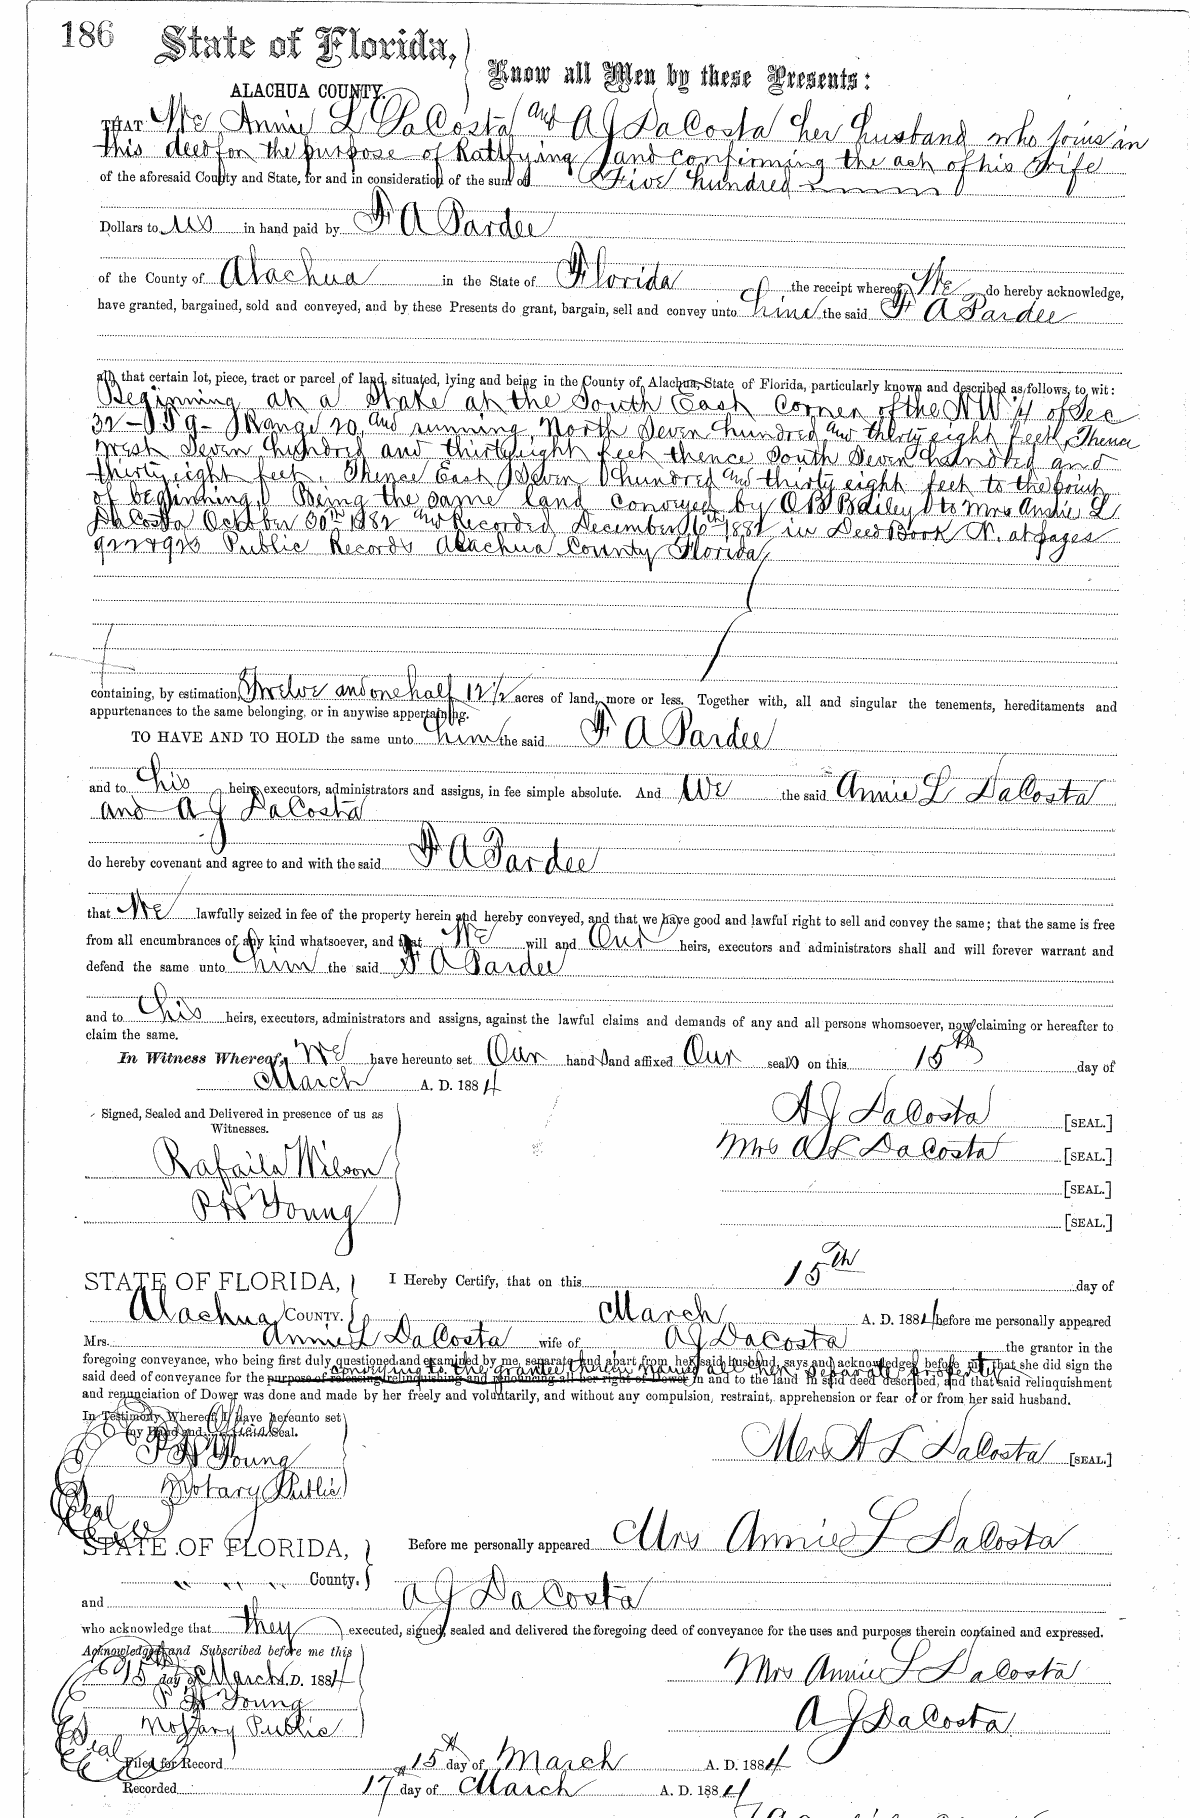 186 State of Florida,
Know all Men by these Presents:
ALACHUA COUNTY.
THAT We Annie L DaCosta and A J DaCosta her husband who joins in
this deed for the purpose of Ratifying and confirming the act of his Wife
of the aforesaid County and State, for and in consideration of the sum of Five hundred
Dollars to us in hand paid by F A Pardee
of the County of Alachua in the State of Florida the receipt whereof We do hereby acknowledge,
have granted, bargained, sold and conveyed, and by these Presents do grant, bargain, sell and convey unto him the said F A Pardee
all that certain lot, piece, tract or parcel of land, situated, lying and being in the County of Alachua, State of Florida, particularly known and described as follows, to wit:
Beginning at a Stake at the South East Corner of the NW 1/4 of Sec
32 - T 9 - Range 20, and running North Seven hundred and thirty eight feet, Thence
West Seven hundred and thirty eight feet thence South Seven hundred and
thirty eight feet, Thence East Seven hundred and thirty eight feet to the point
of beginning. Being the same land conveyed by O B Bailey to Mrs Annie L
DaCosta October 30th 1882 and Recorded December 6th 1882 in Deed Book N. at pages
922 & 923 Public Records Alachua County Florida,
containing, by estimation, Twelve and one half 12 1/2 acres of land, more or less. Together with, all and singular the tenements, hereditaments and
appurtenances to the same belonging, or in anywise appertaining.
TO HAVE AND TO HOLD the same unto him the said F A Pardee
and to his heirs, executors, administrators and assigns, in fee simple absolute. And We the said Annie L DaCosta
and A J DaCosta
do hereby covenant and agree to and with the said F A Pardee
that We lawfully seized in fee of the property herein and hereby conveyed, and that we have good and lawful right to sell and convey the same; that the same is free
from all encumbrances of any kind whatsoever, and that We will and Our heirs, executors and administrators shall and will forever warrant and
defend the same unto him the said F A Pardee
and to his heirs, executors, administrators and assigns, against the lawful claims and demands of any and all persons whomsoever, now claiming or hereafter to
claim the same.
In Witness Whereof, We have hereunto set Our hands and affixed Our seals on this 15th day of
March A. D. 1884
Signed, Sealed and Delivered in presence of us as
Witnesses.
A J DaCosta [SEAL.]
Mrs A L DaCosta [SEAL.]
Rafaila Wilson
[SEAL.]
P H Young
[SEAL.]
STATE OF FLORIDA, I Hereby Certify, that on this 15th day of
Alachua COUNTY. March A. D. 1884 before me personally appeared
Mrs. Annie L DaCosta wife of A J DaCosta the grantor in the
foregoing conveyance, who being first duly questioned and examined by me, separate and apart from her said husband, says and acknowledges before me, that she did sign the
conveying to the grantee therein named all her separate property
said deed of conveyance for the purpose of releasing, relinquishing and renouncing all her right of Dower in and to the land in said deed described, and that said relinquishment
and renunciation of Dower was done and made by her freely and voluntarily, and without any compulsion, restraint, apprehension or fear of or from her said husband.
In Testimony Whereof I have hereunto set
my Hand and Official Seal.
P H Young
Mrs A L DaCosta [SEAL.]
Notary Public
Seal
STATE OF FLORIDA, Before me personally appeared Mrs Annie L DaCosta
" " " County.
and A J DaCosta
who acknowledge that they executed, signed, sealed and delivered the foregoing deed of conveyance for the uses and purposes therein contained and expressed.
Acknowledged and Subscribed before me this
15th day of March A. D. 1884
Mrs Annie L DaCosta
P H Young
A J DaCosta
Notary Public
Seal
Filed for Record 15th day of March A. D. 1884
Recorded 17th day of March A. D. 1884